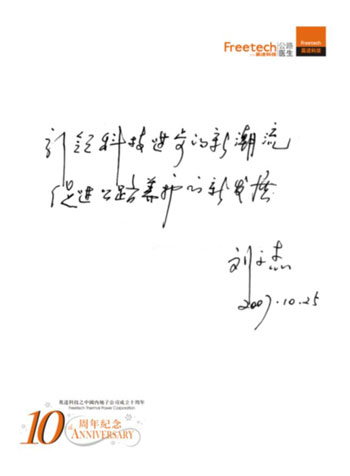 Freetech 公路医生
英达科技
Freetech
英达科技
引领科技进步的新潮流
促进公路养护的新发展
刘文杰
2007.10.25
英达科技之中国内地子公司成立十周年
Freetech Thermal Power Corporation
10th 周年纪念
ANNIVERSARY